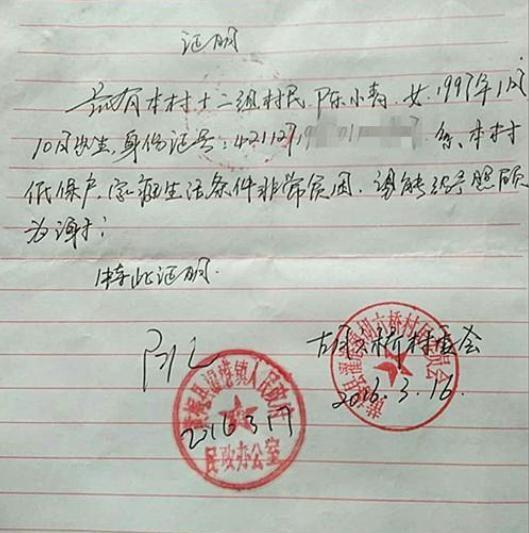 证明
兹有本村十二组村民陈小青，女，1997年1月
10日出生，身份证号：421127199 01 系本村
低保户，家庭生活条件非常贫困，请能给予照顾
为谢！
特此证明
同意
黄梅县濯港镇人民政府
2016.3.17
民政办公室
胡六桥村委会
2016.3.16